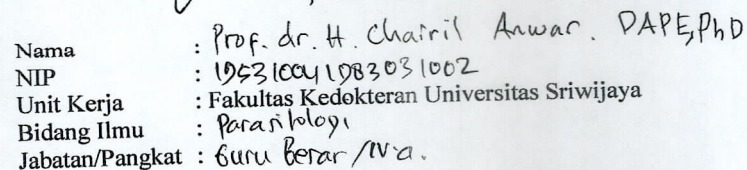 Nama : Prof. dr. H. Chairil Anwar. DAPE, PhD
NIP : 195310041983031002
Unit Kerja : Fakultas Kedokteran Universitas Sriwijaya
Bidang Ilmu : Parasitologi
Jabatan/Pangkat : Guru Besar /IV.a.